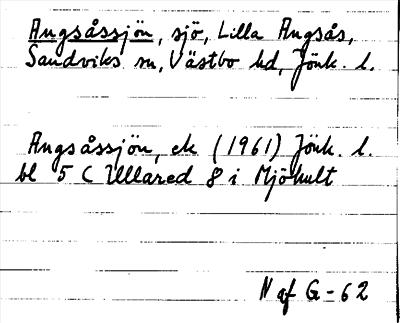 Angsåssjön, sjö, Lilla Angsås,
Sandviks sn, Västbo hd, Jönk. l.
Angsåssjön, ek (1961) Jönk. l.
bl 5 C Ullared 8 i Mjöhult
N af G-62